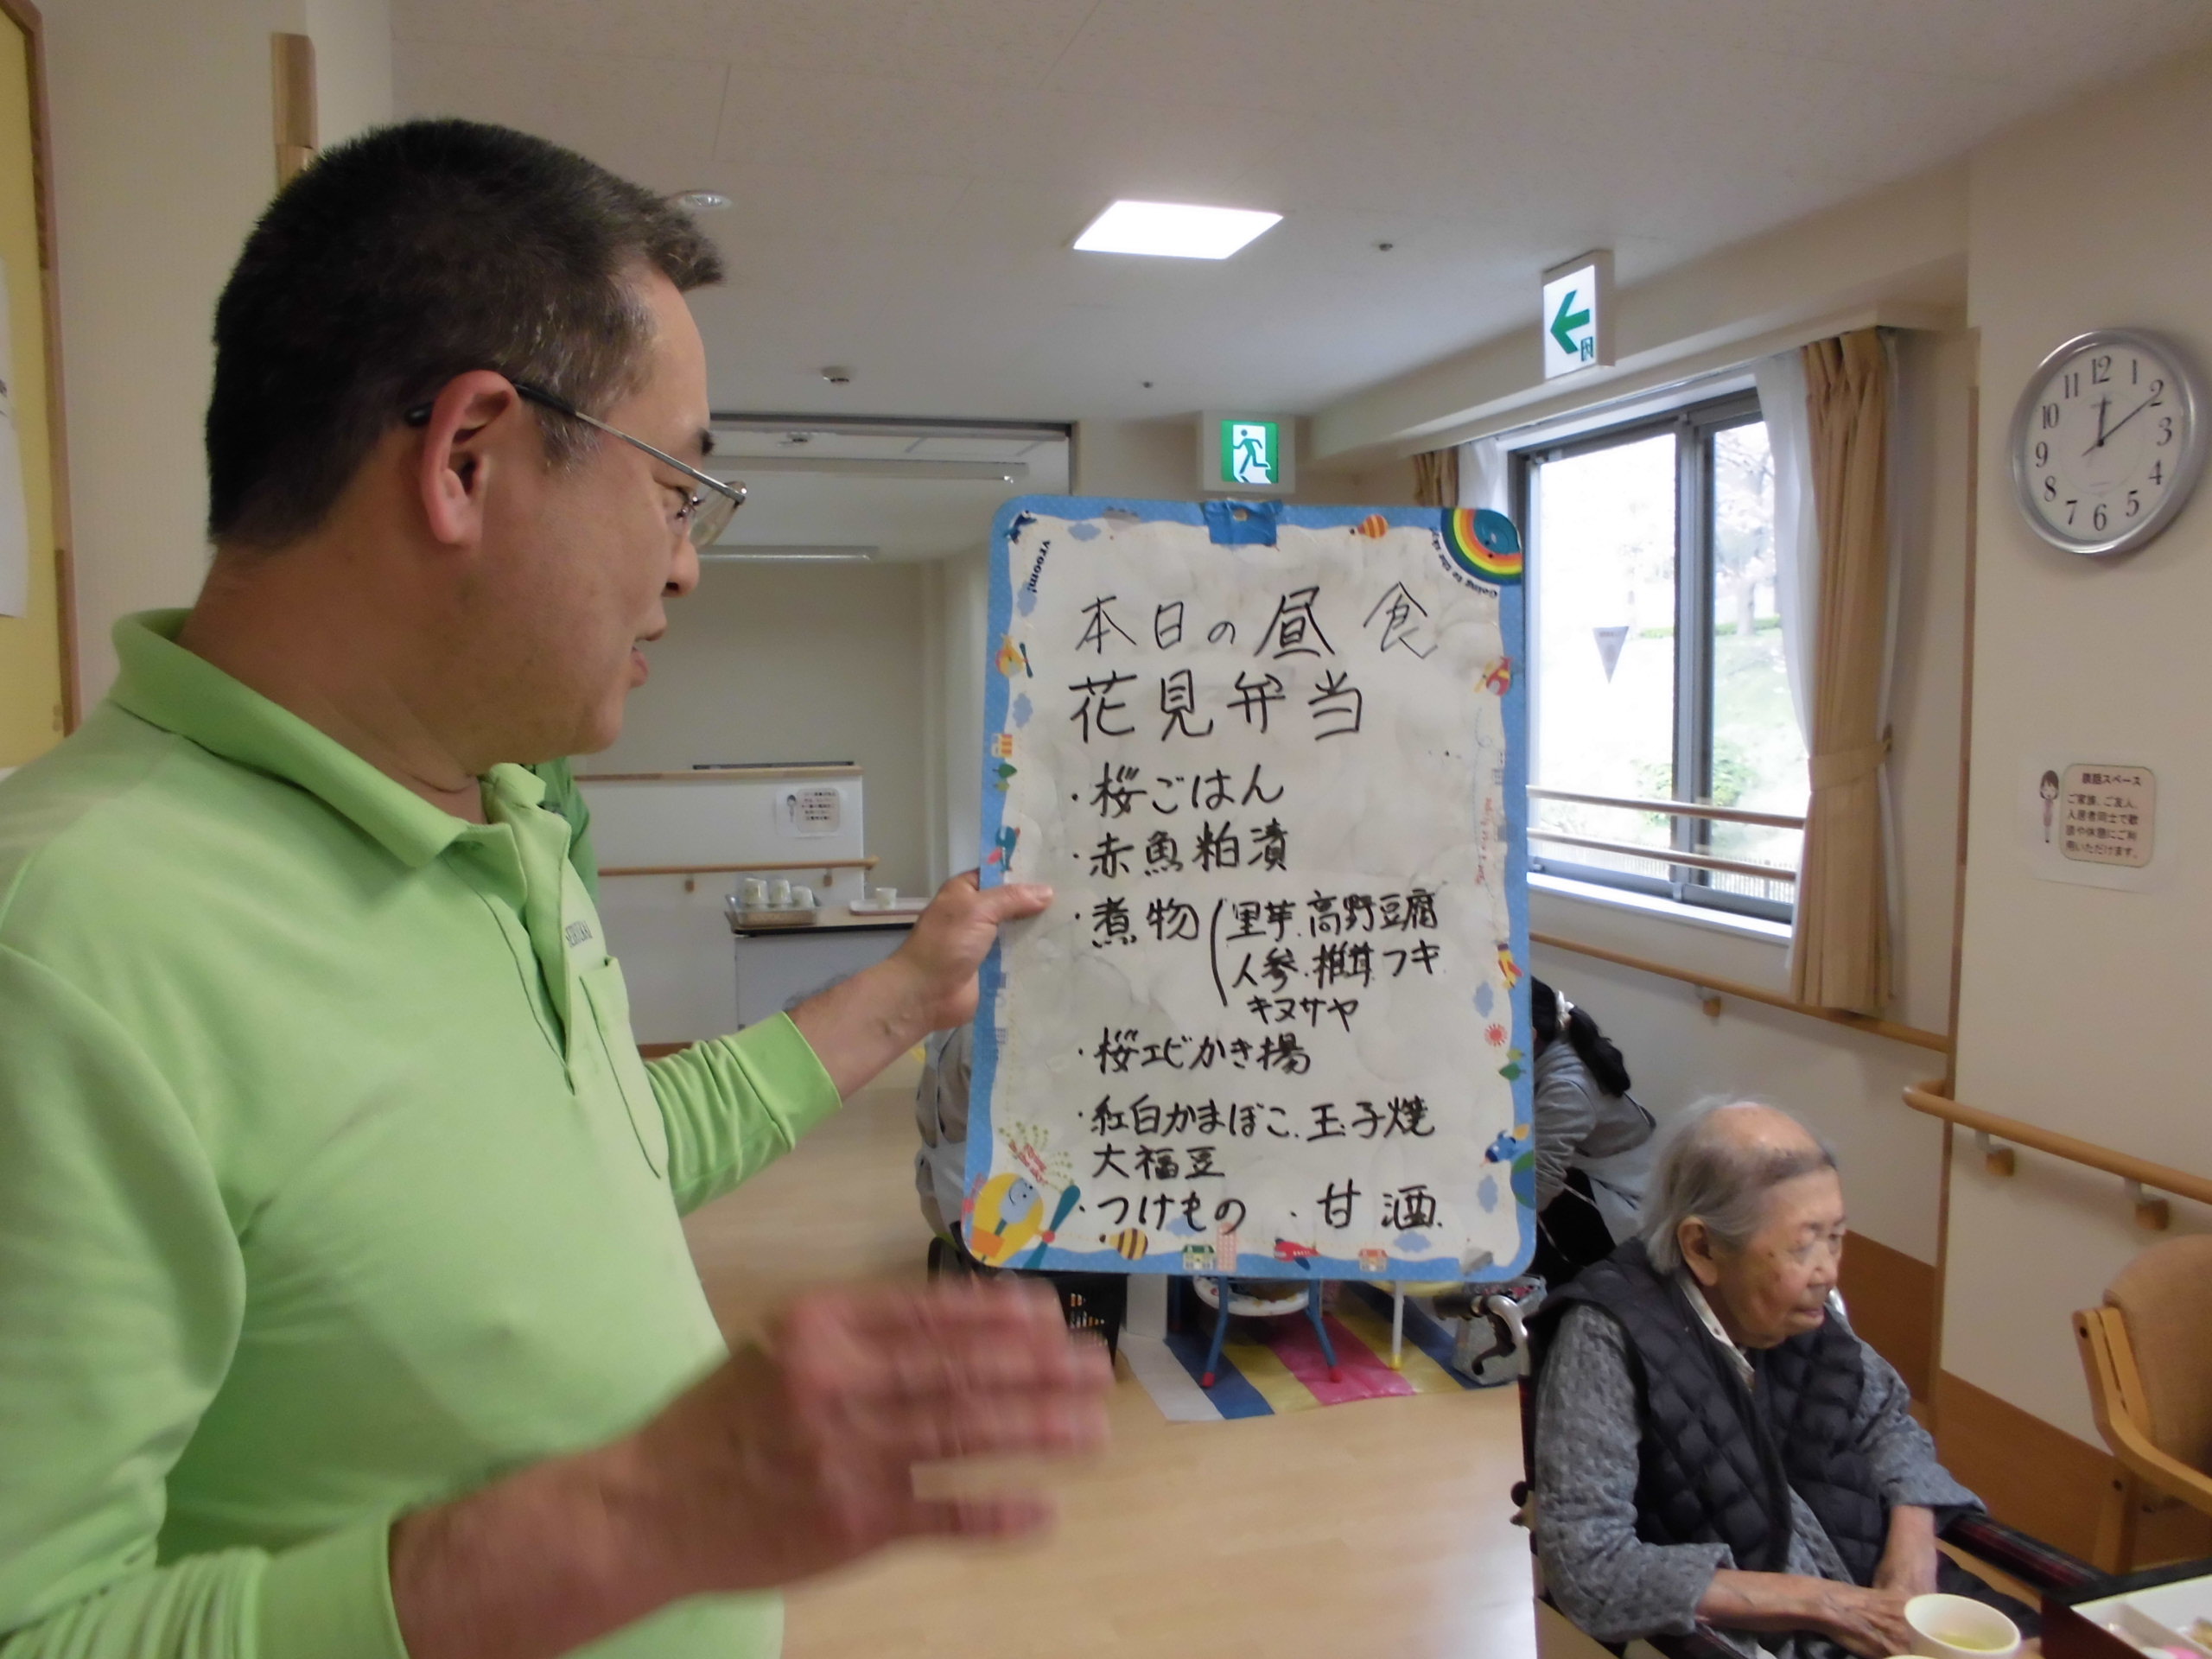 本日の昼食
花見弁当
・桜ごはん
・赤魚粕漬
・煮物(里芋.高野豆腐
人参.椎茸.フキ
キヌサヤ
・桜エビかき揚
・紅白かまぼこ.玉子焼
大福豆
・つけもの ・甘酒.
vroom!
Going to the sky
12
1
2
3
4
5
6
7
8
9
10
11
談話スペース
ご家族、ご友人、
入居者同士で歓
談や休憩にご利
用いただけます。